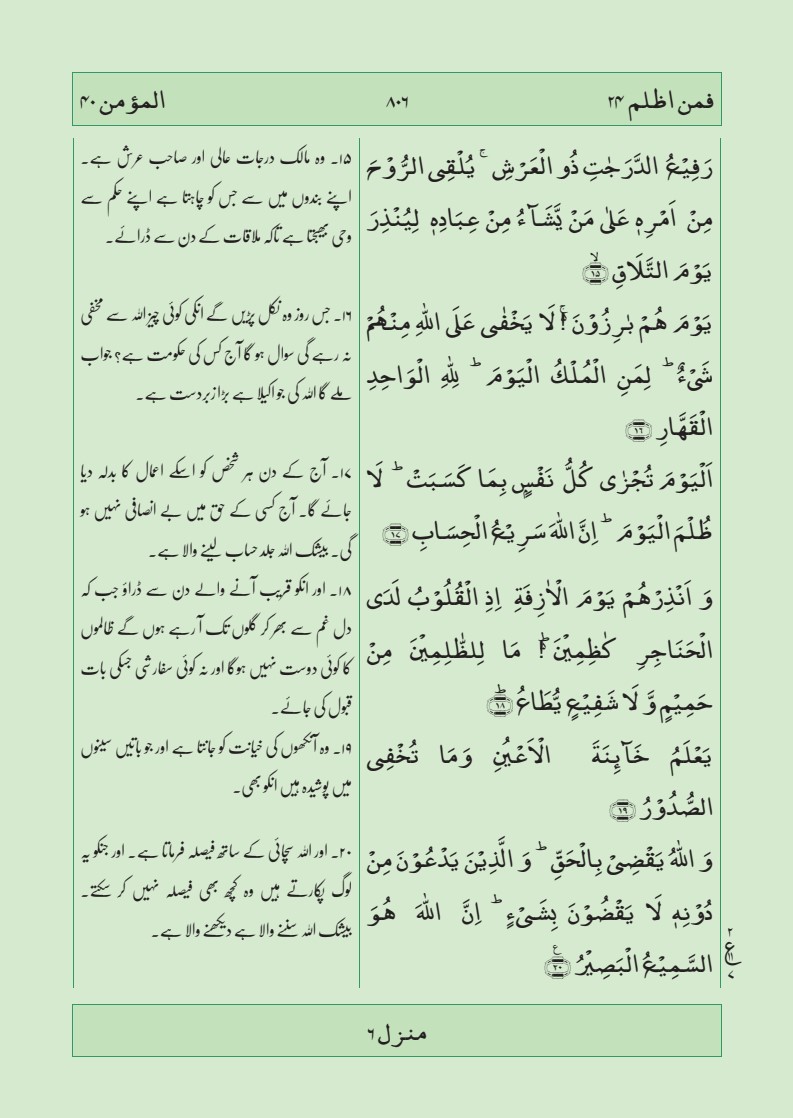 فمن اظلم ۲۴
۸۰۶
المؤمن ۴۰
رَفِيْعُ الدَّرَجٰتِ ذُو الْعَرْشِ ۚ يُلْقِى الرُّوْحَ
مِنْ اَمْرِهٖ عَلٰى مَنْ يَّشَآءُ مِنْ عِبَادِهٖ لِيُنْذِرَ
يَوْمَ التَّلَاقِ ۙ‏﴿۱۵﴾
يَوْمَ هُمْ بٰرِزُوْنَ ۚ۬ لَا يَخْفٰى عَلَى اللّٰهِ مِنْهُمْ
شَىْءٌ ؕ لِمَنِ الْمُلْكُ الْيَوْمَ ؕ لِلّٰهِ الْوَاحِدِ
الْقَهَّارِ ﴿۱۶﴾
اَلْيَوْمَ تُجْزٰى كُلُّ نَفْسٍۭ بِمَا كَسَبَتْ ؕ لَا
ظُلْمَ الْيَوْمَ ؕ اِنَّ اللّٰهَ سَرِيْعُ الْحِسَابِ ﴿۱۷﴾
وَ اَنْذِرْهُمْ يَوْمَ الْاٰزِفَةِ اِذِ الْقُلُوْبُ لَدَى
الْحَنَاجِرِ كٰظِمِيْنَ ؕ۬ مَا لِلظّٰلِمِيْنَ مِنْ
حَمِيْمٍ وَّ لَا شَفِيْعٍ يُّطَاعُ ؕ﴿۱۸﴾
يَعْلَمُ خَآئِنَةَ الْاَعْيُنِ وَمَا تُخْفِى
الصُّدُوْرُ ﴿۱۹﴾
وَ اللّٰهُ يَقْضِىْ بِالْحَقِّ ؕ وَ الَّذِيْنَ يَدْعُوْنَ مِنْ
دُوْنِهٖ لَا يَقْضُوْنَ بِشَىْءٍ ؕ اِنَّ اللّٰهَ هُوَ
السَّمِيْعُ الْبَصِيْرُ ﴿۲۰﴾
۲
ع
۷
۱۵۔ وہ مالک درجات عالی اور صاحب عرش ہے۔
اپنے بندوں میں سے جس کو چاہتا ہے اپنے حکم سے
وحی بھیجتا ہے تاکہ ملاقات کے دن سے ڈرائے۔
۱۶۔ جس روز وہ نکل پڑیں گے انکی کوئی چیز اللہ سے مخفی
نہ رہے گی سوال ہو گا آج کس کی حکومت ہے؟ جواب
ملے گا اللہ کی جو اکیلا ہے بڑا زبردست ہے۔
۱۷۔ آج کے دن ہر شخص کو اسکے اعمال کا بدلہ دیا
جائے گا۔ آج کسی کے حق میں بے انصافی نہیں ہو
گی۔ بیشک اللہ جلد حساب لینے والا ہے۔
۱۸۔ اور انکو قریب آنے والے دن سے ڈراؤ جب کہ
دل غم سے بھر کر گلوں تک آ رہے ہوں گے ظالموں
کا کوئی دوست نہیں ہوگا اور نہ کوئی سفارشی جسکی بات
قبول کی جائے۔
۱۹۔ وہ آنکھوں کی خیانت کو جانتا ہے اور جو باتیں سینوں
میں پوشیدہ ہیں انکو بھی۔
۲۰۔ اور اللہ سچائی کے ساتھ فیصلہ فرماتا ہے۔ اور جنکو یہ
لوگ پکارتے ہیں وہ کچھ بھی فیصلہ نہیں کر سکتے۔
بیشک اللہ سننے والا ہے دیکھنے والا ہے۔
منزل ۶